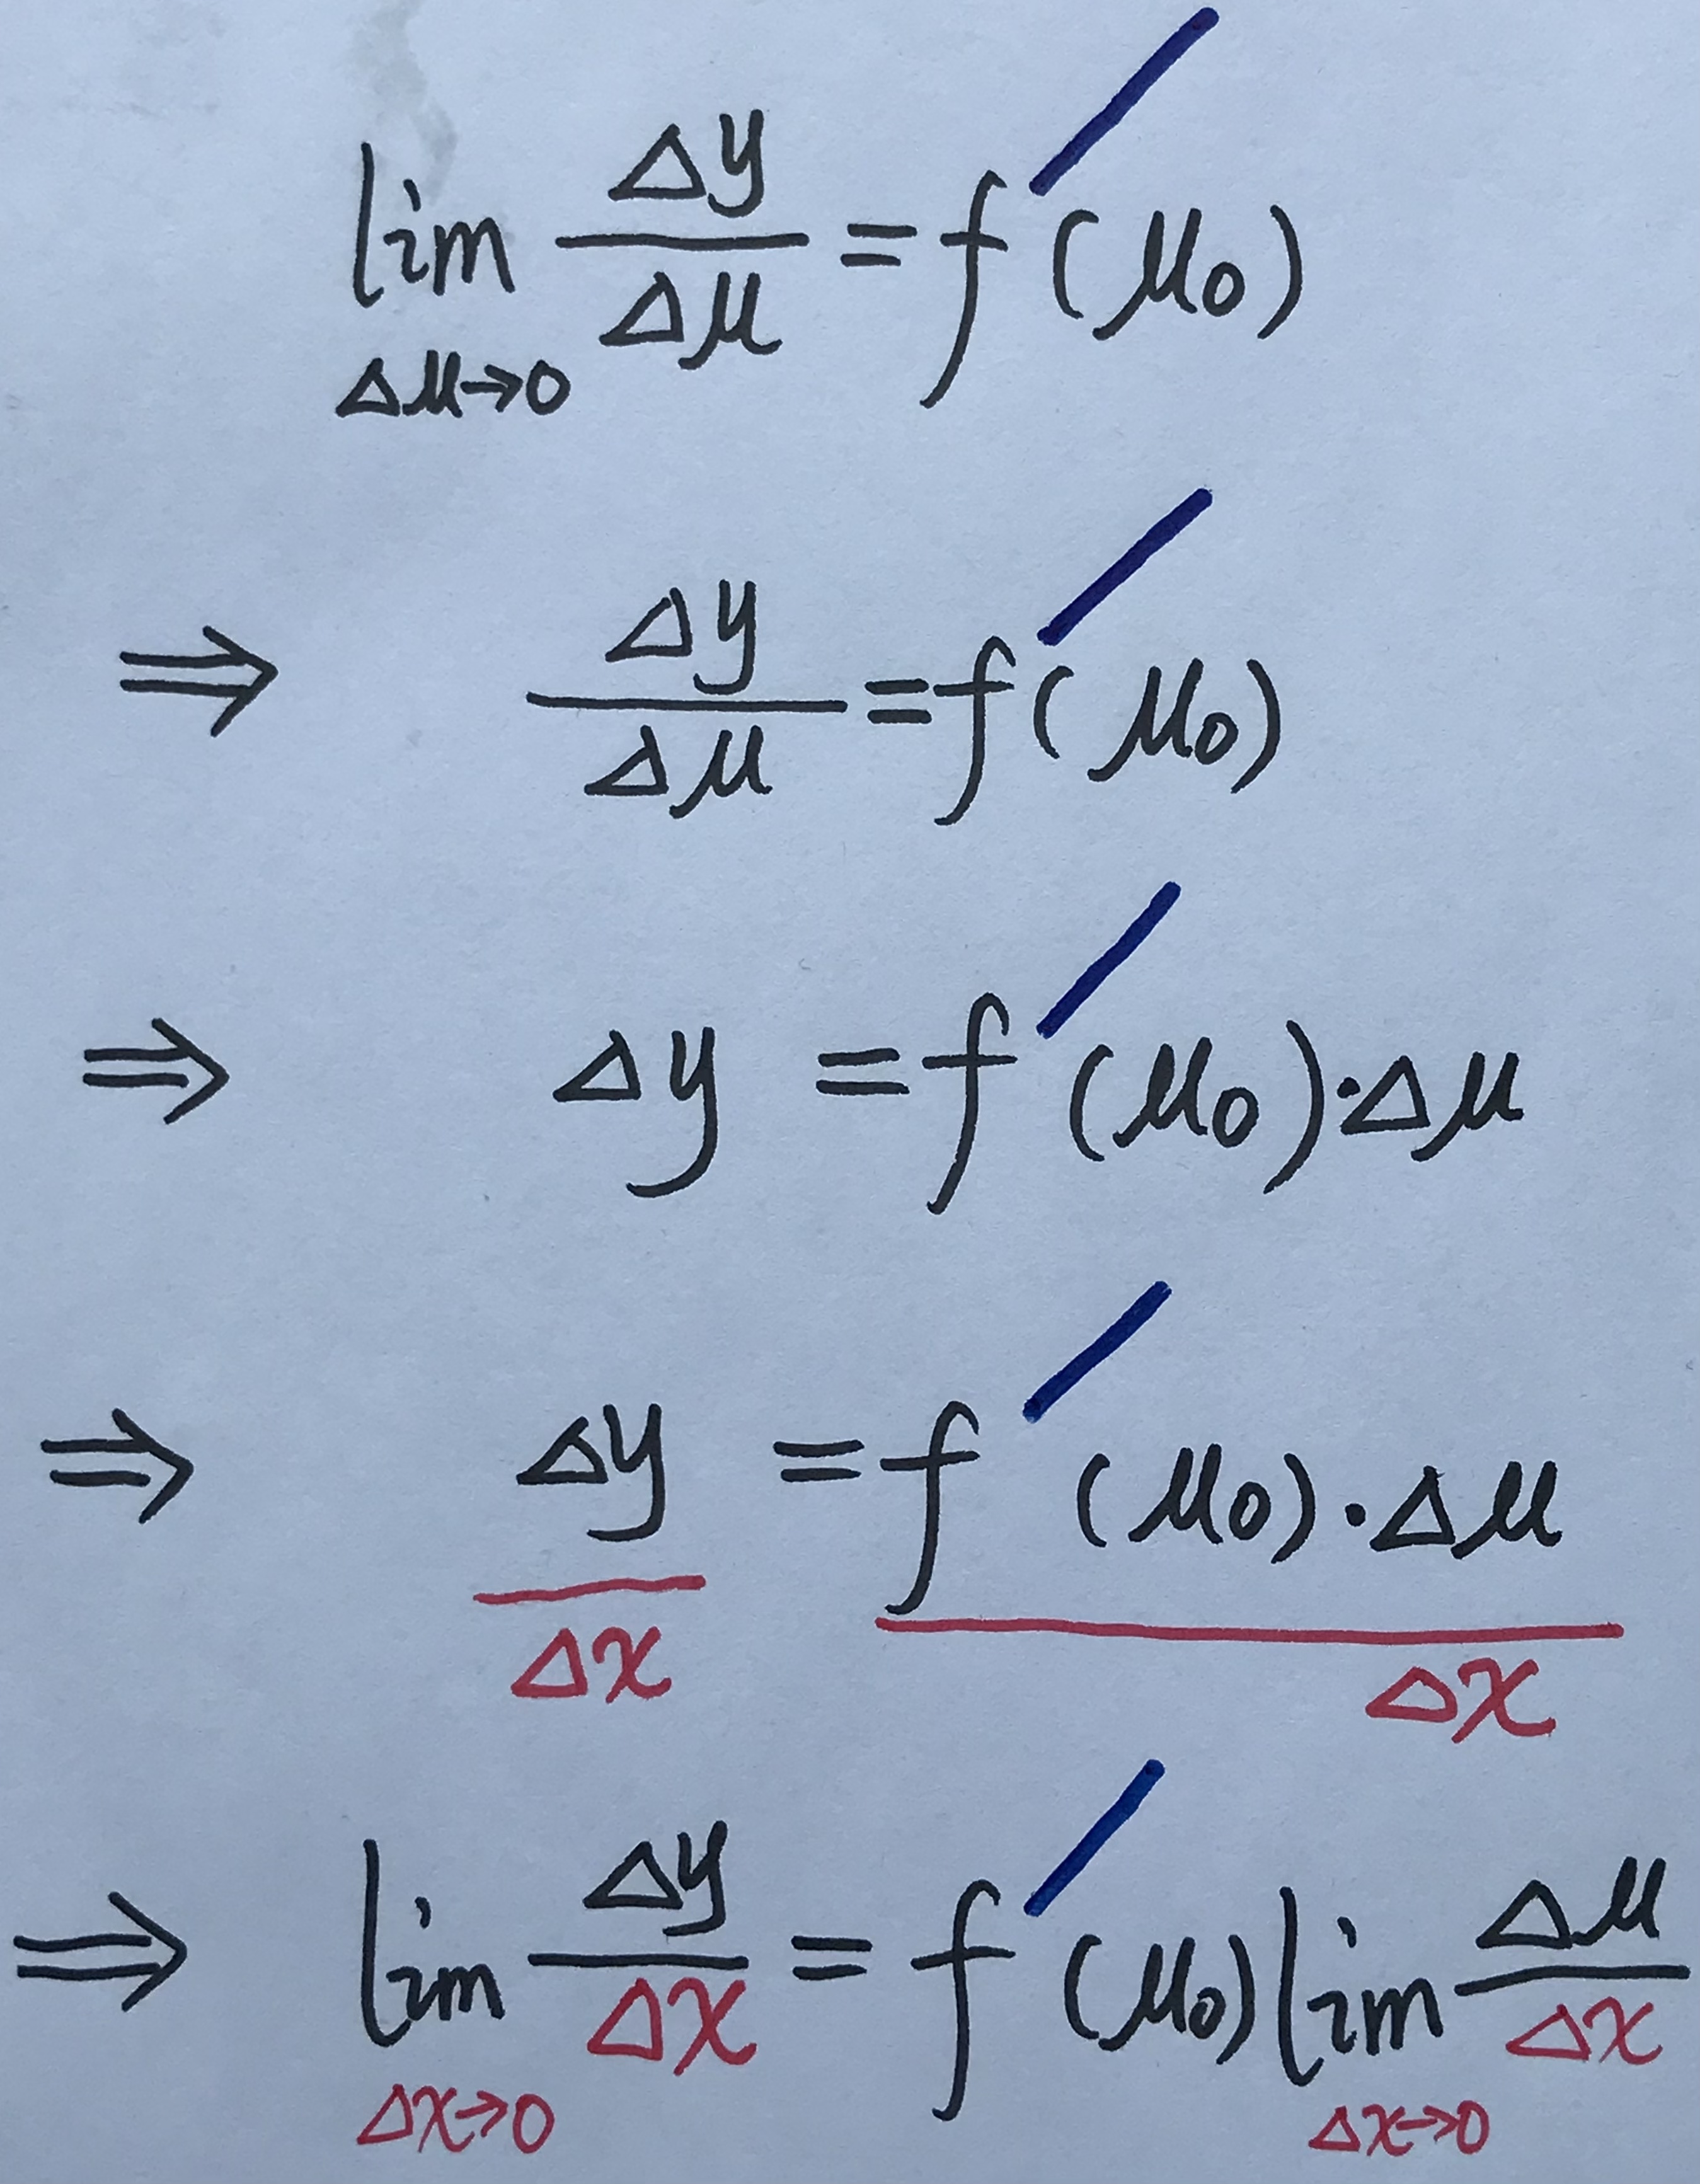 lim Δμ→0 Δy/Δμ = f′(μ0)
⇒ Δy/Δμ = f′(μ0)
⇒ Δy = f′(μ0)·Δμ
⇒ Δy/Δx = f′(μ0)·Δμ/Δx
⇒ lim Δx→0 Δy/Δx = f′(μ0) lim Δx→0 Δμ/Δx